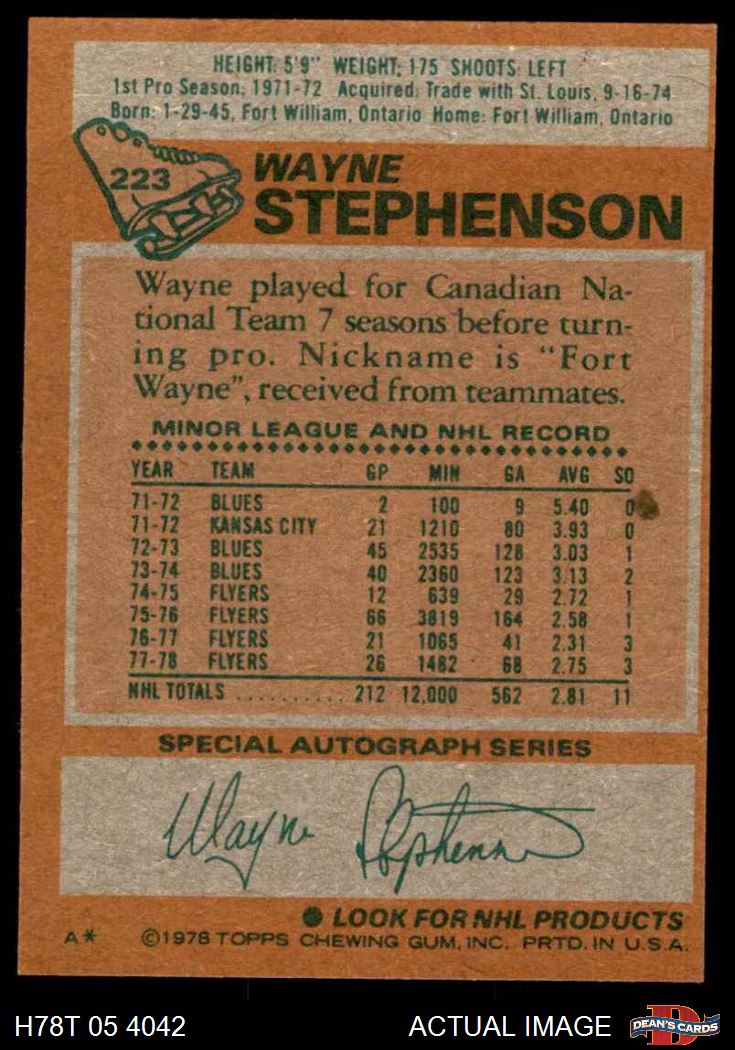 HEIGHT: 5'9" WEIGHT: 175 SHOOTS: LEFT
1st Pro Season: 1971-72 Acquired: Trade with St. Louis, 9-16-74
Born: 1-29-45, Fort William, Ontario Home: Fort William, Ontario
223
WAYNE
STEPHENSON
Wayne played for Canadian Na-
tional Team 7 seasons before turn-
ing pro. Nickname is "Fort
Wayne", received from teammates.
MINOR LEAGUE AND NHL RECORD
YEAR TEAM GP MIN GA AVG SO
71-72 BLUES 2 100 9 5.40 0
71-72 KANSAS CITY 21 1210 80 3.93 0
72-73 BLUES 45 2535 128 3.03 1
73-74 BLUES 40 2360 123 3.13 2
74-75 FLYERS 12 639 29 2.72 1
75-76 FLYERS 66 3819 164 2.58 1
76-77 FLYERS 21 1065 41 2.31 3
77-78 FLYERS 26 1482 68 2.75 3
NHL TOTALS .......... 212 12,000 562 2.81 11
SPECIAL AUTOGRAPH SERIES
Wayne Stephenson
● LOOK FOR NHL PRODUCTS
A* ©1978 TOPPS CHEWING GUM, INC. PRTD. IN U.S.A.
H78T 05 4042 ACTUAL IMAGE D DEAN'S CARDS